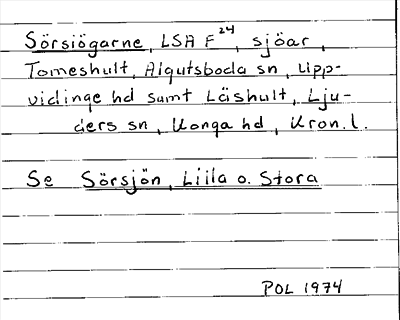 Sörsiögarne, LSA F²⁴, sjöar,
Tomeshult, Algutsboda sn, Upp-
vidinge hd samt Låshult, Lju-
ders sn, Konga hd, Kron.l.
Se Sörsjön, Liila o. Stora
POL 1974